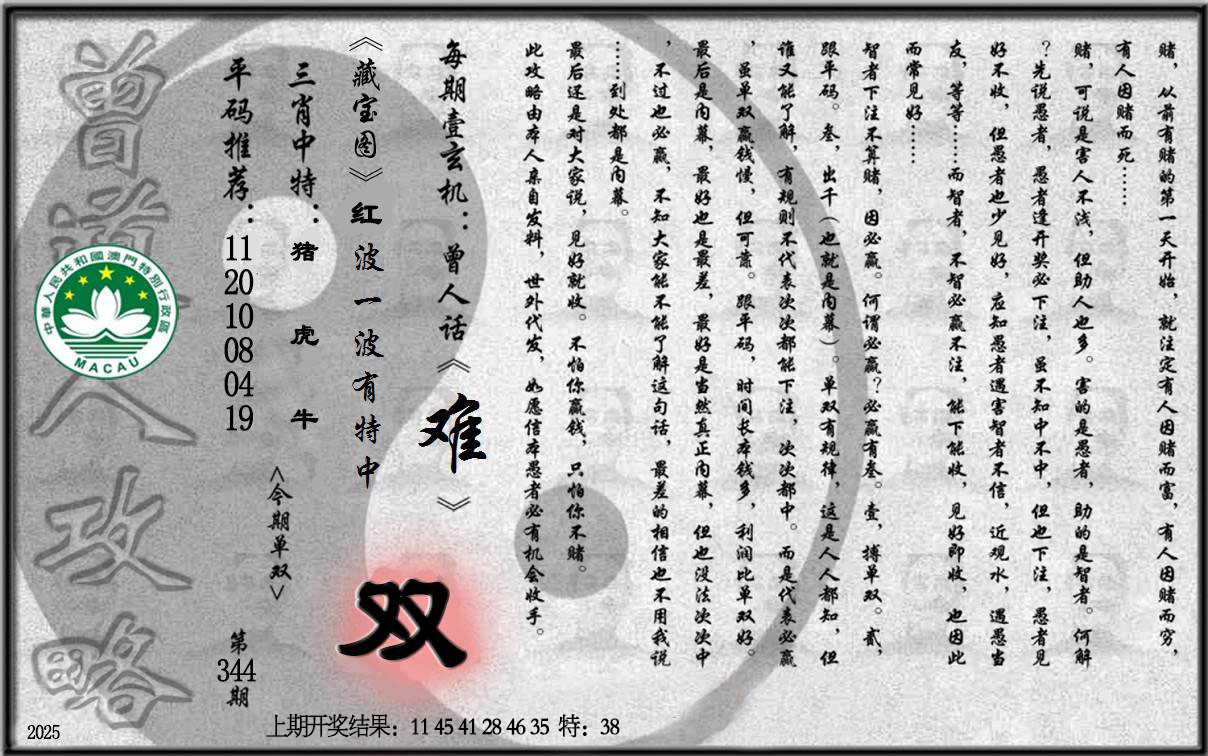 赌，从前有赌的第一天开始，就注定有人因赌而富，有人因赌而穷，
有人因赌而死……
赌，可说是害人不浅，但助人也多。害的是愚者，助的是智者。何解
？先说愚者，愚者逢开奖必下注，虽不知中不中，但也下注，愚者见
好不收，但愚者也少见好，应知愚者遇害智者不信，近观水，遇愚当
友，等等……而智者，不智必赢不注，能下能收，见好即收，也因此
而常见好……
智者下注不算赌，因必赢。何谓必赢？必赢有叁。壹，搏单双。贰，
跟平码。叁，出千（也就是内幕）。单双有规律，这是人人都知，但
谁又能了解，有规则不代表次次都能下注，次次都中。而是代表必赢
，虽单双赢钱慢，但可靠。跟平码，时间长本钱多，利润比单双好。
最后是内幕，最好也是最差，最好是当然真正内幕，但也没法次次中
，不过也必赢，不知大家能不能了解这句话，最差的相信也不用我说
……到处都是内幕。
最后还是对大家说，见好就收。不怕你赢钱，只怕你不赌。
此攻略由本人亲自发料，世外代发，如愿信本愚者必有机会收手。
每期壹玄机：曾人话《难》
《藏宝图》红波一波有特中
双
三肖中特：猪 虎 牛
<今期单双>
平码推荐：11 20 10 08 04 19
第344期
曾道人攻略
中華人民共和國澳門特別行政區
MACAU
2025
上期开奖结果：11 45 41 28 46 35 特：38